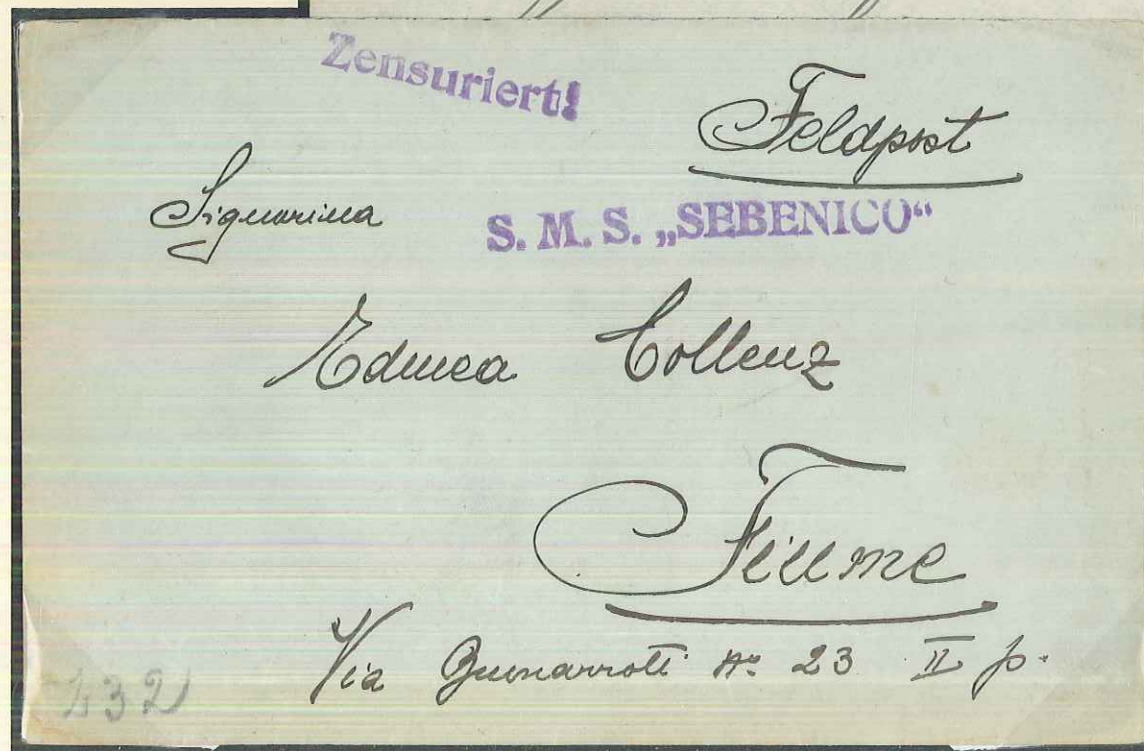 Zensuriert!
Feldpost
Signorina
S. M. S. „SEBENICO“
Edmea Collenz
Fiume
Via Buonarroti No 23 II p.
232